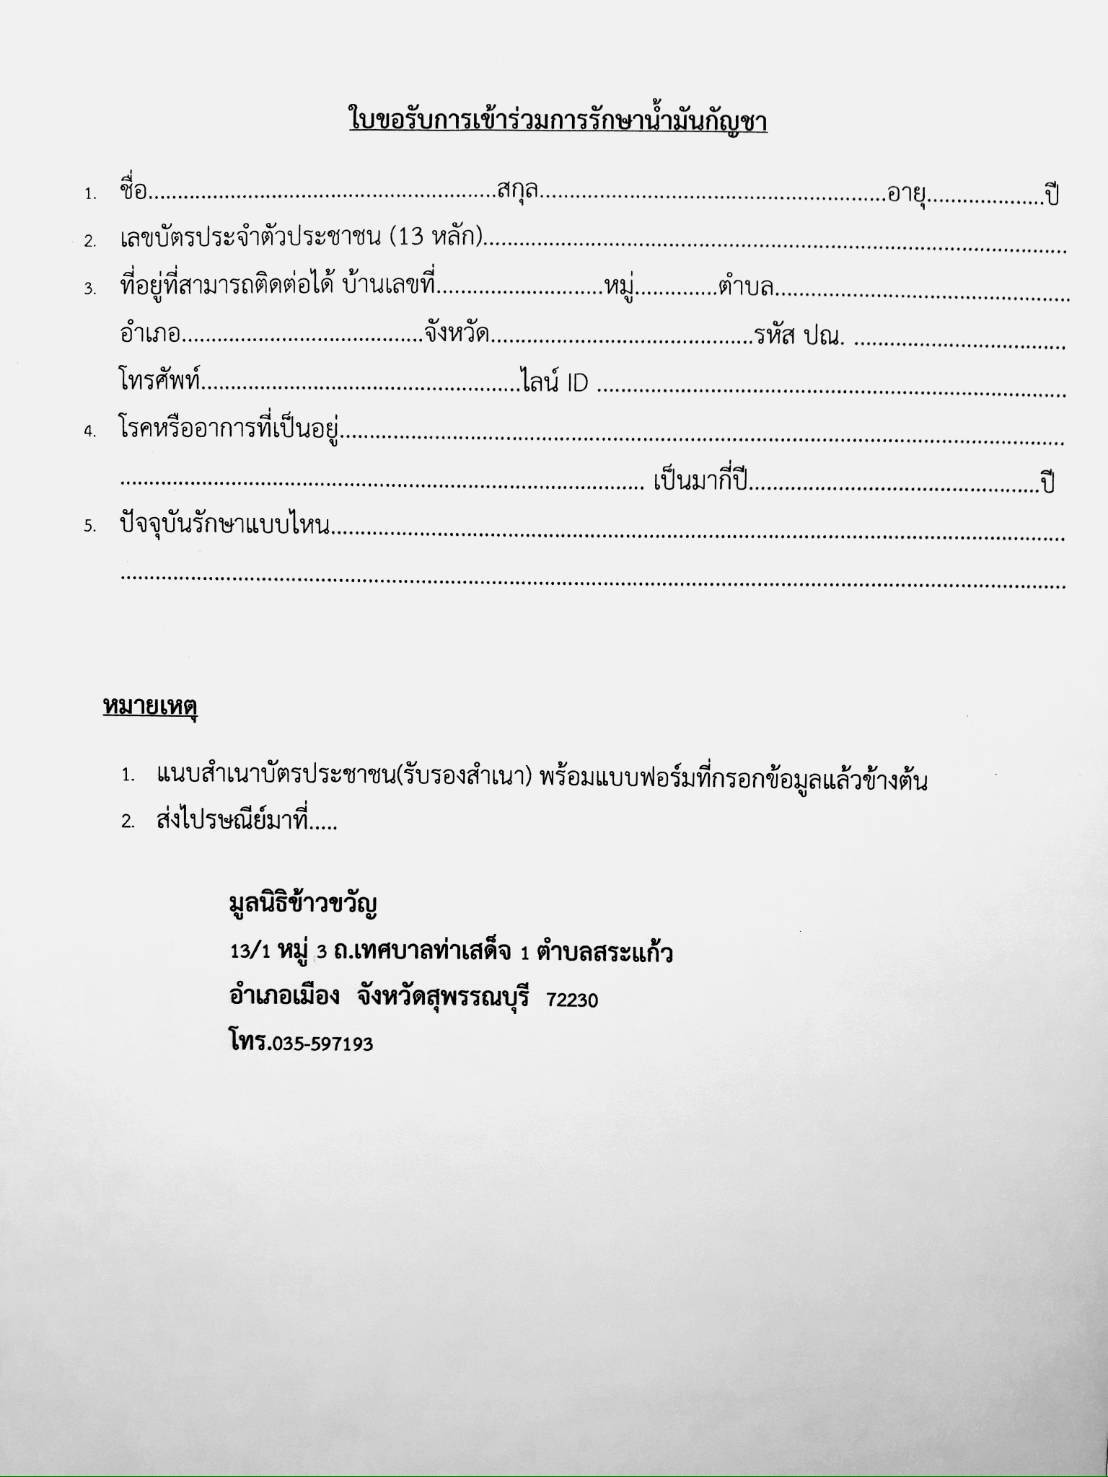 ใบขอรับการเข้าร่วมการรักษาน้ำมันกัญชา
1. ชื่อ..........................................................สกุล..........................................................อายุ....................ปี
2. เลขบัตรประจำตัวประชาชน (13 หลัก)..................................................................................................
3. ที่อยู่ที่สามารถติดต่อได้ บ้านเลขที่............................หมู่..............ตำบล..................................................
อำเภอ.........................................จังหวัด............................................รหัส ปณ. ....................................
โทรศัพท์......................................................ไลน์ ID ................................................................................
4. โรคหรืออาการที่เป็นอยู่..........................................................................................................................
......................................................................................... เป็นมากี่ปี.................................................ปี
5. ปัจจุบันรักษาแบบไหน............................................................................................................................
................................................................................................................................................................
หมายเหตุ
1. แนบสำเนาบัตรประชาชน(รับรองสำเนา) พร้อมแบบฟอร์มที่กรอกข้อมูลแล้วข้างต้น
2. ส่งไปรษณีย์มาที่.....
มูลนิธิข้าวขวัญ
13/1 หมู่ 3 ถ.เทศบาลท่าเสด็จ 1 ตำบลสระแก้ว
อำเภอเมือง จังหวัดสุพรรณบุรี 72230
โทร.035-597193